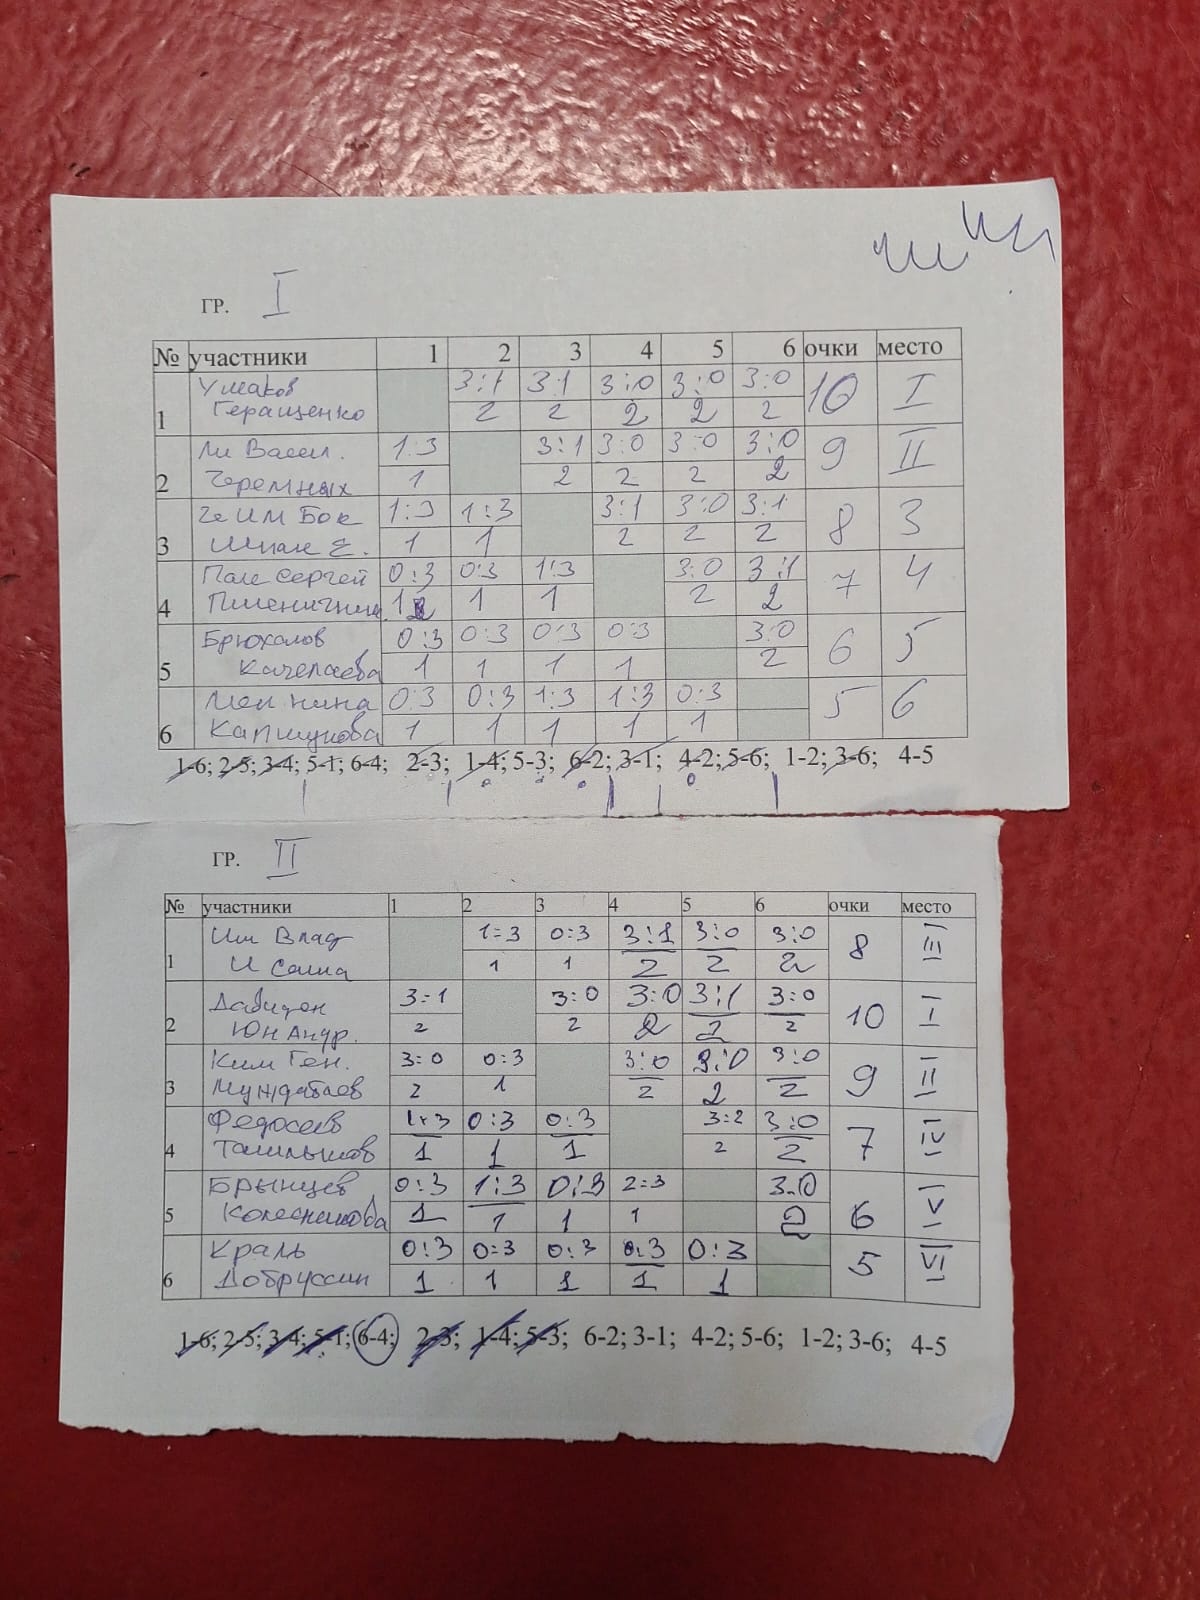 ГР. I
№ участники 1 2 3 4 5 6 очки место
Ушаков 3:1 3:1 3:0 3:0 3:0 10 I
1 Геращенко 2 2 2 2 2
Ли Васил. 1:3 3:1 3:0 3:0 3:0 9 II
2 Черемных 1 2 2 2 2
Че Им Бок 1:3 1:3 3:1 3:0 3:1 8 3
3 Шпак Е. 1 1 2 2 2
Пак Сергей 0:3 0:3 1:3 3:0 3:1 7 4
4 1 1 1 2 2
Брюхалов 0:3 0:3 0:3 0:3 3:0 6 5
5 1 1 1 1 2
Мен Нина 0:3 0:3 1:3 1:3 0:3 5 6
6 1 1 1 1 1
1-6; 2-5; 3-4; 5-1; 6-4; 2-3; 1-4; 5-3; 6-2; 3-1; 4-2; 5-6; 1-2; 3-6; 4-5
ГР. II
№ участники 1 2 3 4 5 6 очки место
Им Влад 1=3 0:3 3:1 3:0 3:0 8 III
1 И Саша 1 1 2 2 2
Давидян 3=1 3:0 3:0 3:1 3:0 10 I
2 Юн Андр. 2 2 2 2 2
Ким Ген. 3=0 0:3 3:0 3:0 3:0 9 II
3 Муждабаев 2 1 2 2 2
Федосеев 1:3 0:3 0:3 3:2 3:0 7 IV
4 1 1 1 2 2
Брынцев 0:3 1:3 0:3 2=3 3-0 6 V
5 Колесникова 1 1 1 1 2
Краль 0:3 0=3 0:3 0:3 0:3 5 VI
6 Добруссин 1 1 1 1 1
1-6; 2-5; 3-4; 5-1; 6-4; 2-3; 1-4; 5-3; 6-2; 3-1; 4-2; 5-6; 1-2; 3-6; 4-5